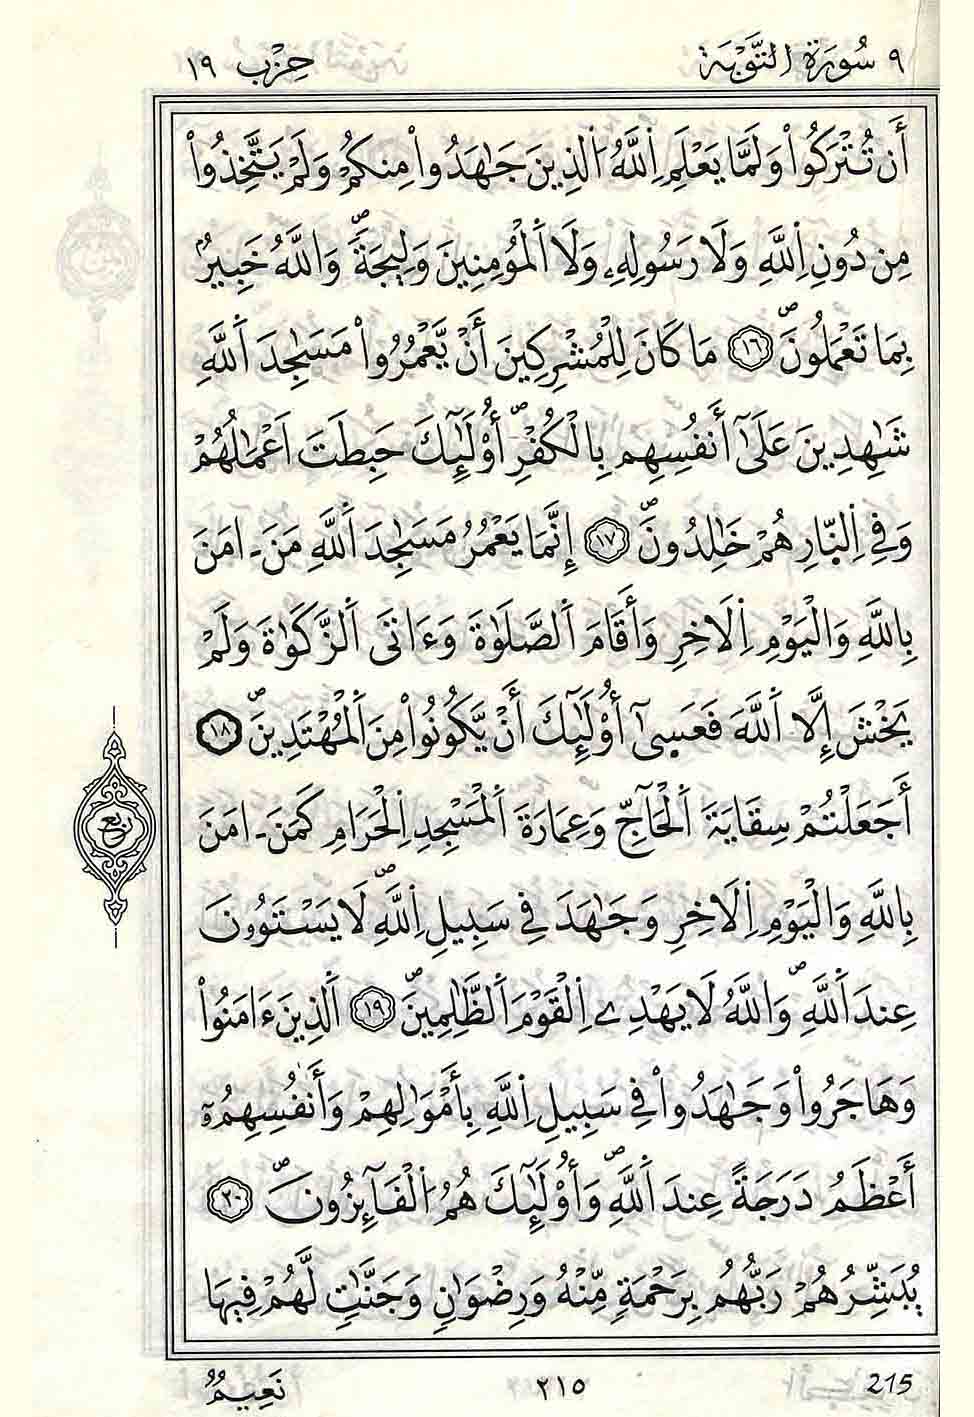 ٩ سُورَةُ التَّوْبَة
حِزْب ١٩
أَن تُتْرَكُواْ وَلَمَّا يَعْلَمِ اِ۬للَّهُ اُ۬لذِينَ جَٰهَدُواْ مِنكُمْ وَلَمْ يَتَّخِذُواْ
مِن دُونِ اِ۬للَّهِ وَلَا رَسُولِهِۦ وَلَا اَ۬لْمُؤْمِنِينَ وَلِيجَةٗۖ وَاللَّهُ خَبِيرُۢ
بِمَا تَعْمَلُونَۖ ١٦ مَا كَانَ لِلْمُشْرِكِينَ أَنْ يَّعْمُرُواْ مَسَٰجِدَ اَ۬للَّهِ
شَٰهِدِينَ عَلَىٰٓ أَنفُسِهِم بِالْكُفْرِۖ أُوْلَٰٓئِكَ حَبِطَتَ اَعْمَٰلُهُمْ
وَفِے اِ۬لنّ۪ارِ هُمْ خَٰلِدُونَۖ ١٧ إِنَّمَا يَعْمُرُ مَسَٰجِدَ اَ۬للَّهِ مَنَ ـ امَنَ
بِاللَّهِ وَالْيَوْمِ اِ۬لَاخِرِ وَأَقَامَ اَ۬لصَّلَوٰةَ وَءَاتَى اَ۬لزَّكَوٰةَ وَلَمْ
يَخْشَ إِلَّا اَ۬للَّهَ فَعَس۪ىٰٓ أُوْلَٰٓئِكَ أَنْ يَّكُونُواْ مِنَ اَ۬لْمُهْتَدِينَۖ ١٨
أَجَعَلْتُمْ سِقَايَةَ اَ۬لْحَآجِّ وَعِمَارَةَ اَ۬لْمَسْجِدِ اِ۬لْحَرَامِ كَمَنَ ـ امَنَ
بِاللَّهِ وَالْيَوْمِ اِ۬لَاخِرِ وَجَٰهَدَ فِے سَبِيلِ اِ۬للَّهِۖ لَا يَسْتَوُۥنَ
عِندَ اَ۬للَّهِۖ وَاللَّهُ لَا يَهْدِے اِ۬لْقَوْمَ اَ۬لظَّٰلِمِينَۖ ١٩ اَ۬لذِينَ ءَامَنُواْ
وَهَاجَرُواْ وَجَٰهَدُواْ فِے سَبِيلِ اِ۬للَّهِ بِأَمْوَٰلِهِمْ وَأَنفُسِهِمُۥٓ
أَعْظَمُ دَرَجَةً عِندَ اَ۬للَّهِۖ وَأُوْلَٰٓئِكَ هُمُ اُ۬لْفَآئِزُونَۖ ٢٠
يُبَشِّرُهُمْ رَبُّهُم بِرَحْمَةٖ مِّنْهُ وَرِضْوَٰنٖ وَجَنَّٰتٖ لَّهُمْ فِيهَا
ربع
215
٢١٥
نَعِيمٞ